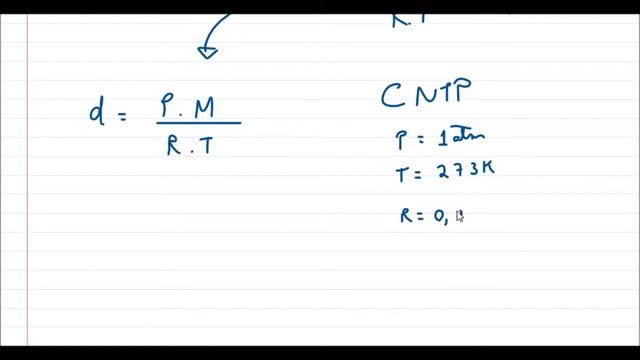 R.T
d = P.M / R.T
CNTP
P = 1 atm
T = 273K
R = 0,